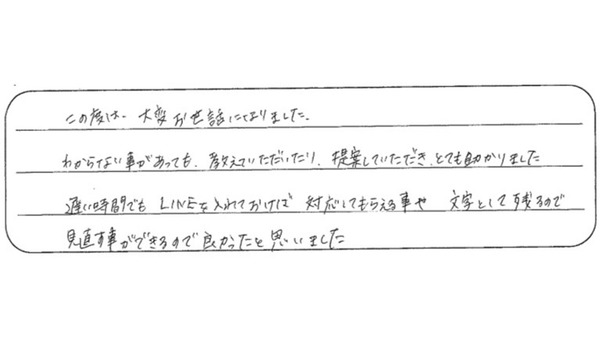 この度は、大変お世話になりました。
わからない事があっても、教えていただいたり、提案していただき、とても助かりました
遅い時間でも LINEを入れておけば 対応してもらえる事や 文字として残るので
見直す事ができるので良かったと思いました